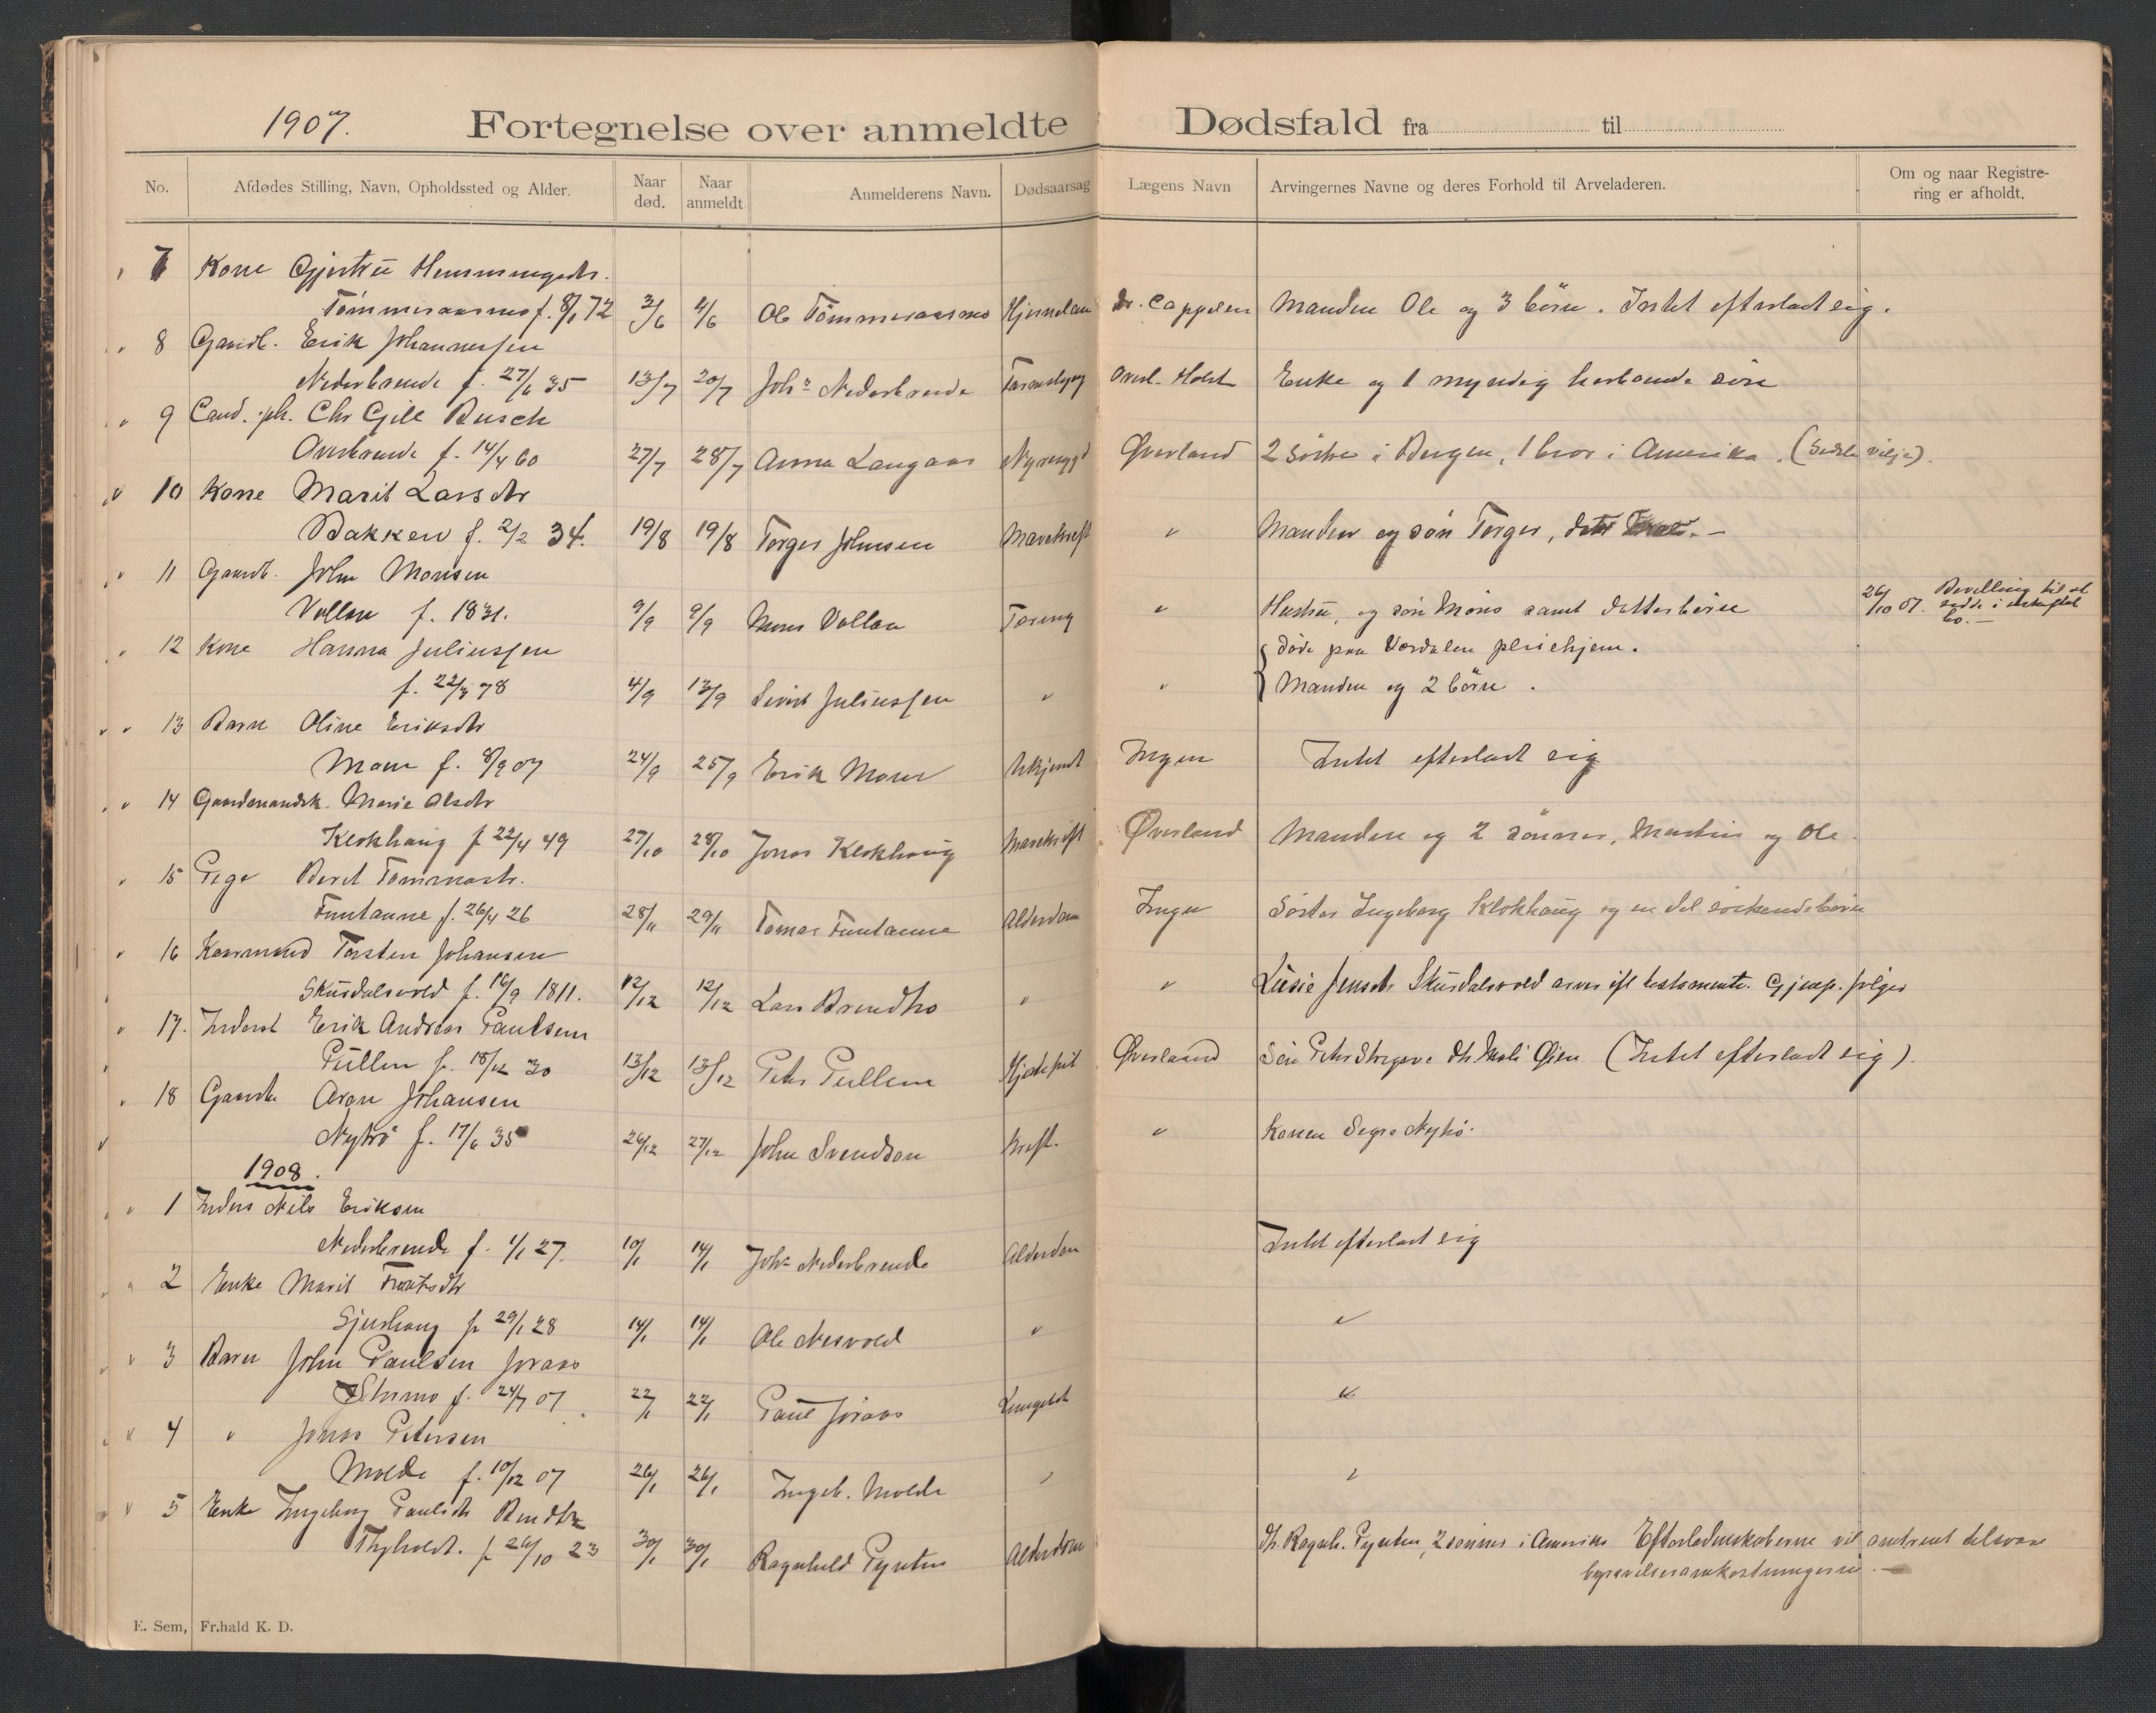 1907. Fortegnelse over anmeldte Dødsfald fra til
No. Afdødes Stilling, Navn, Opholdssted og Alder. Naar død. Naar anmeldt Anmelderens Navn. Dødsaarsag Lægens Navn Arvingernes Navne og deres Forhold til Arveladeren. Om og naar Registrering er afholdt.
7 Kone Gjertrü Hemmingsdtr.
Tømmeraasmo f. 8/1 72 3/6 4/6 Ole Tømmeraasmo Dr. Cappelen Manden Ole og 3 börn. Intet efterladt sig.
8 Gaardb. Erik Johannessen
Nederbrende f. 27/6 35 13/7 20/7 Johs Nederbrende Overl. Holst Enke og 1 myndig søn
9 Cand. ph. Chr Gill Busch
Overbrende f. 14/4 60 27/7 28/7 Anna Langaas Øverland 2 söstre i Bergen, 1 bror i Amerika.
10 Kone Marit Larsdtr
Bakken f. 2/2 34. 19/8 19/8 Torger Johnsen Mavekreft " Manden og søn Torger,
11 Gaardb. John Monsen
Vollan f. 1831. 9/9 9/9 Mons Vollan Tæring " Hustru, og søn Mons samt datterbörn 26/10 07. Bevilling til at sidde i uskiftet bo. —
12 Kone Hanna Juliussen døde paa Værdalen pleiehjem.
f. 22/3 78 4/9 13/9 Sivert Juliussen " " Manden og 2 börn.
13 Barn Oline Eriksdtr
Moan f. 8/9 07 24/9 25/9 Erik Moan Ukjendt Ingen Intet efterladt sig
14 Gaardmandsk. Marie Olsdtr
Klokhaug f 22/4 49 27/10 28/10 Jonas Klokhaug Mavekreft Øverland Manden og 2 sønner, Martin og Ole.
15 Pige Beret Tommasdtr.
Funtaune f. 26/4 26 28/11 29/11 Tomas Funtaune Alderdom Ingen Søster Ingeborg Klokhaug og en del søskendebörn
16 Kaarmand Torsten Johansen
Skusdalsvold f. 16/9 1811. 12/12 12/12 Lars Brendmo " " Lusie Jensdtr Skusdalsvold arver ifl testamente. Gjenp. følger
17. Inderst Erik Andreas Paulsen
Püllen f. 18/12 30 13/12 13/12 Peter Püllen Øverland Søn Peter (Intet efterladt sig).
18 Gaardb. Aron Johansen
Nytrø f. 17/6 35 26/12 27/12 John Svendsen Kreft. " Konen Segre Nytrø.
1908.
1 Inders Nils Eriksen
Nederbrende f. 1/1 27. 10/1 14/1 Johs Nederbrende Alderdom Intet efterladt sig
2 Enke Marit
f 29/1 28 14/1 14/1 Ole Nesvold " "
3 Barn John Paulsen Joraas
f. 24/7 07 22/1 22/1 Paul Joraas "
4 " Jonas Petersen
Molde f. 10/12 07 26/1 26/1 Ingeb. Molde " "
5 Enke Ingeborg Paulsdtr
Thyholdt. f 26/10 23 30/1 30/1 Ragnhild Pynten Alderdom Dt. Ragnh. Pynten, 2 sønner i Amerika Efterladenskaberne vil omtrent tilsvare
begravelsesomkostningerne. —
E. Sem, Fr.hald K. D.